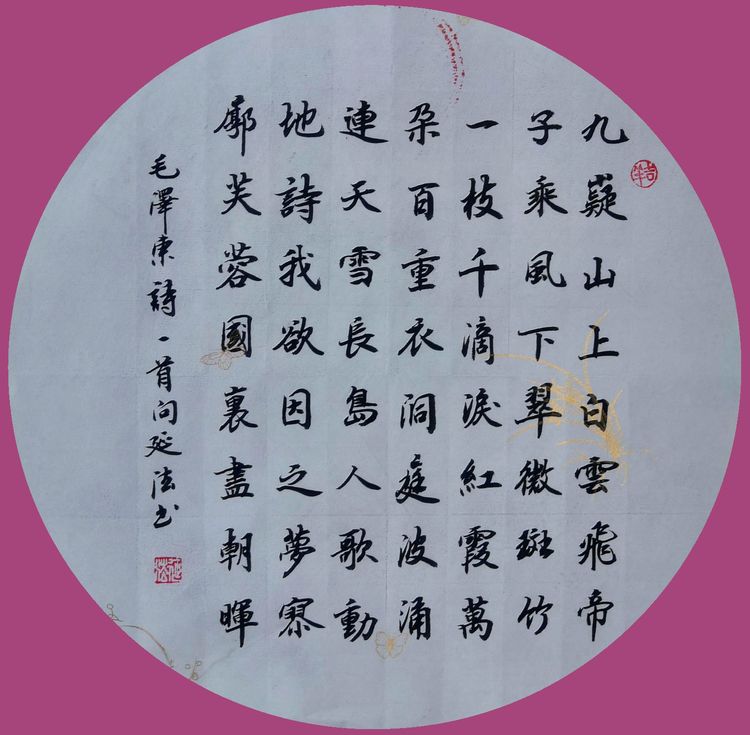 九嶷山上白雲飛帝
子乘風下翠微斑竹
一枝千滴淚紅霞萬
朵百重衣洞庭波涌
連天雪長島人歌動
地詩我欲因之夢寥
廓芙蓉國裏盡朝暉
毛澤東詩一首向延法书
延法